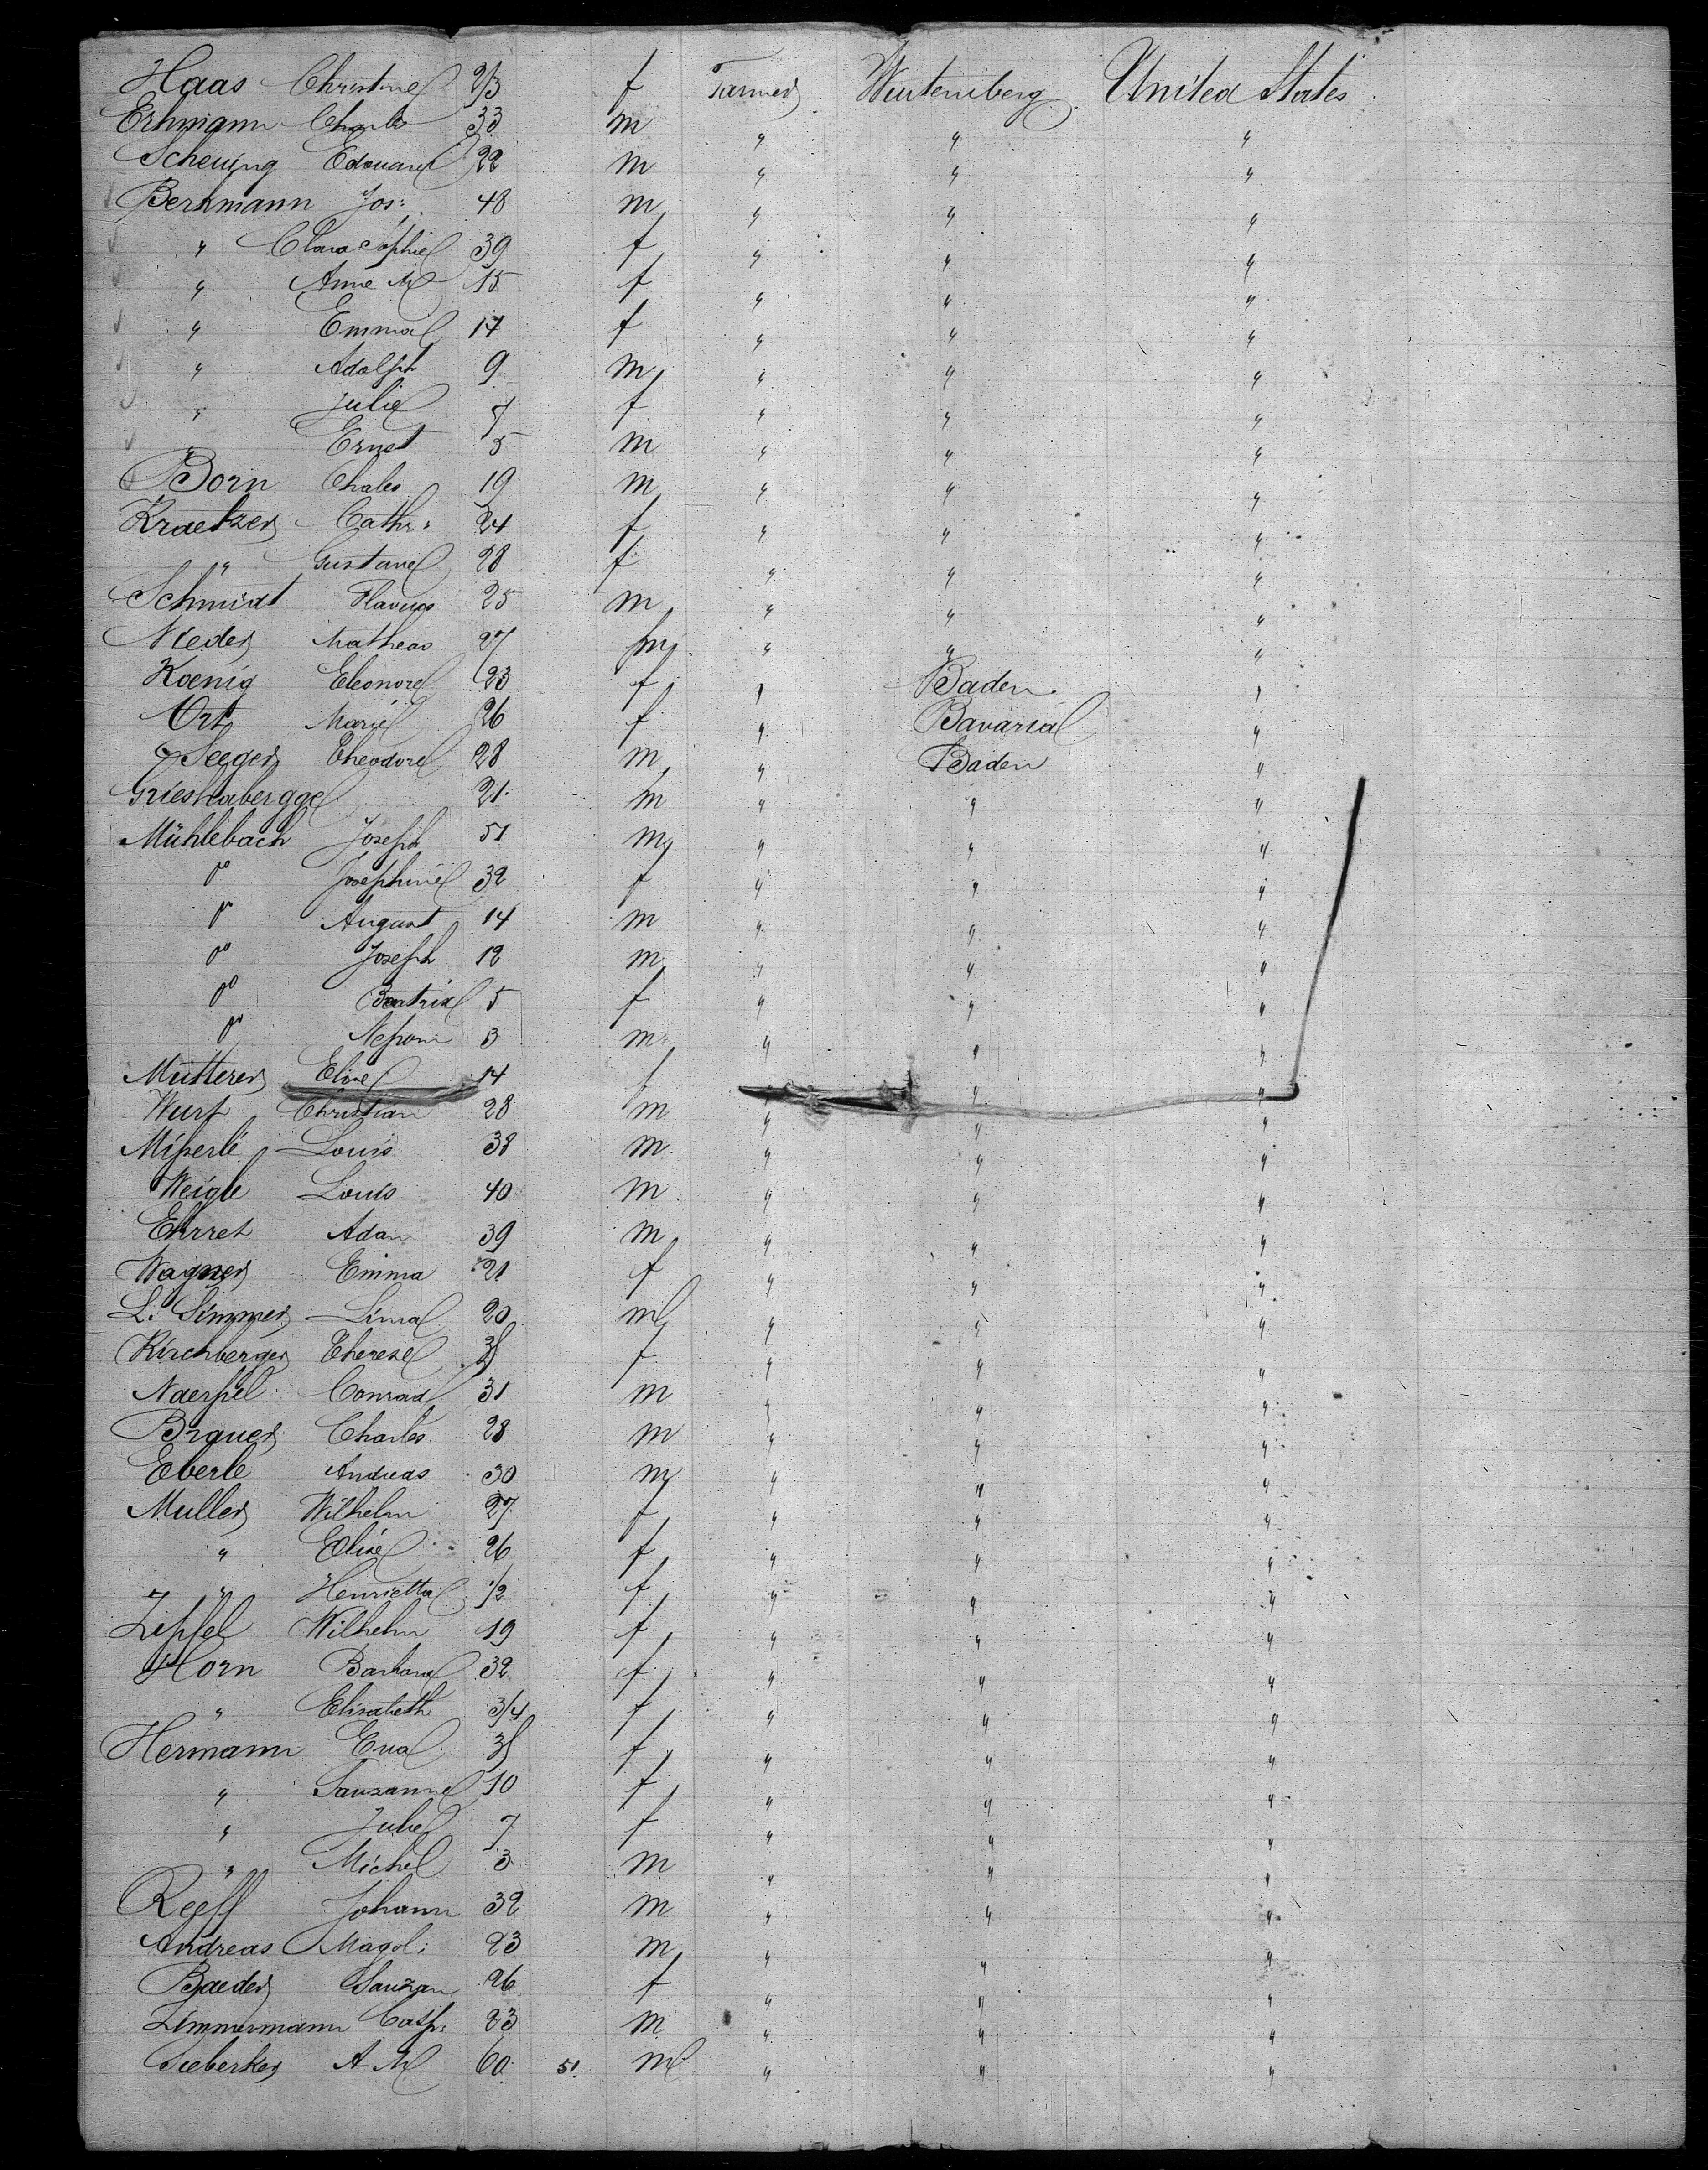 Haas Christine 2/3 f Farmer Wurtemberg United States
Erhmann Charles 33 m " " "
Scheuing Edouard 22 m " " "
Berkmann Jos: 48 m " " "
" Clara Sophie 39 f " " "
" Anne M 15 f " " "
" Emma 14 f " " "
" Adolph 9 m " " "
" Julie 7 f " " "
" Ernst 5 m " " "
Born Chales 19 m " " "
Kraetzer Cathr: 24 f " " "
" Gustave 28 f " " "
Schmidt Flavius 25 m " " "
Nieder Matheas 27 m " " "
Koenig Eleonore 23 f " Baden "
Ort Marie 26 f " Bavaria "
Seeger Theodore 28 m " Baden "
Grieshabergge 21 m " " "
Mühlebach Joseph 51 m " " "
do Josephine 32 f " " "
do August 14 m " " "
do Joseph 12 m " " "
do Beatrix 5 f " " "
do Nepom 3 m " " "
Mutterer Elise 14 f " "
Wurt Christian 28 m " " "
Miperle Louis 38 m " " "
Weigle Louis 40 m " " "
Ehrret Adam 39 m " " "
Wagner Emma 21 f " " "
L. Simmer Lina 20 m " " "
Kirchberger Therese f " " "
Naerpel Conrad 31 m " " "
Brauer Charles 28 m " " "
Eberle Andreas 30 m " " "
Muller Wilhelm 27 f " " "
" Elise 26 f " " "
" Henrietta 1/2 f " " "
Zipfel Wilhelm 19 f " " "
Horn Barbara 32 f " " "
" Elisabeth 3/4 f " " "
Hermann Eva f " " "
" Sauzanne 10 f " " "
" Julie 7 f " " "
" Michel 3 m " " "
Reeff Johann 32 m " " "
Andreas Magd: 23 m " " "
Baeder Sauzan 26 f " " "
Zimmermann Casp: 23 m " " "
Sieberker A M 60 51 m " " "